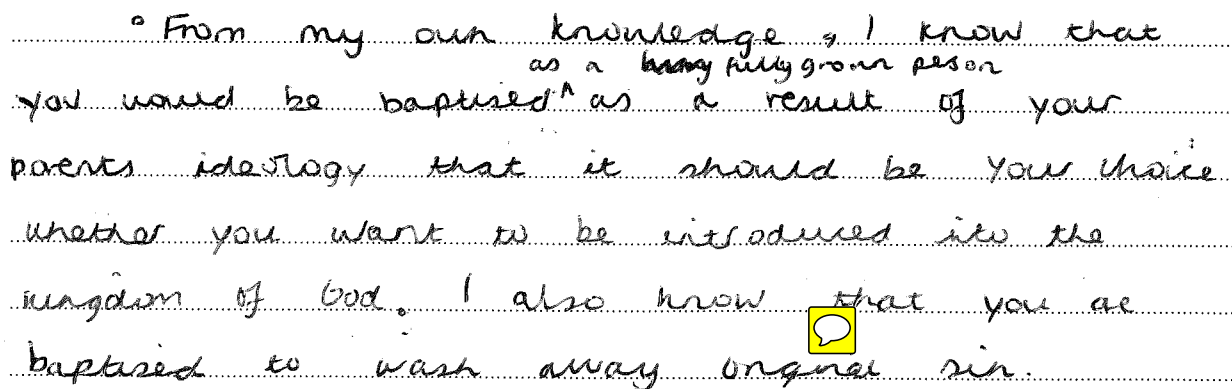 ° From my own knowledge, I know that
as a fully grown peson
you would be baptised ^ as a result of your
parents ideology that it should be your choice
whether you want to be introduced into the
kingdom of God. I also know that you ae
baptised to wash away original sin.